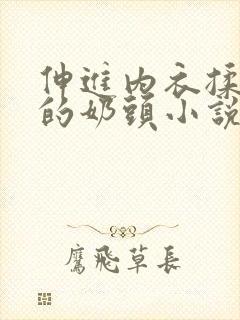 伸進內衣揉
的奶頭小說
鷹飛草長